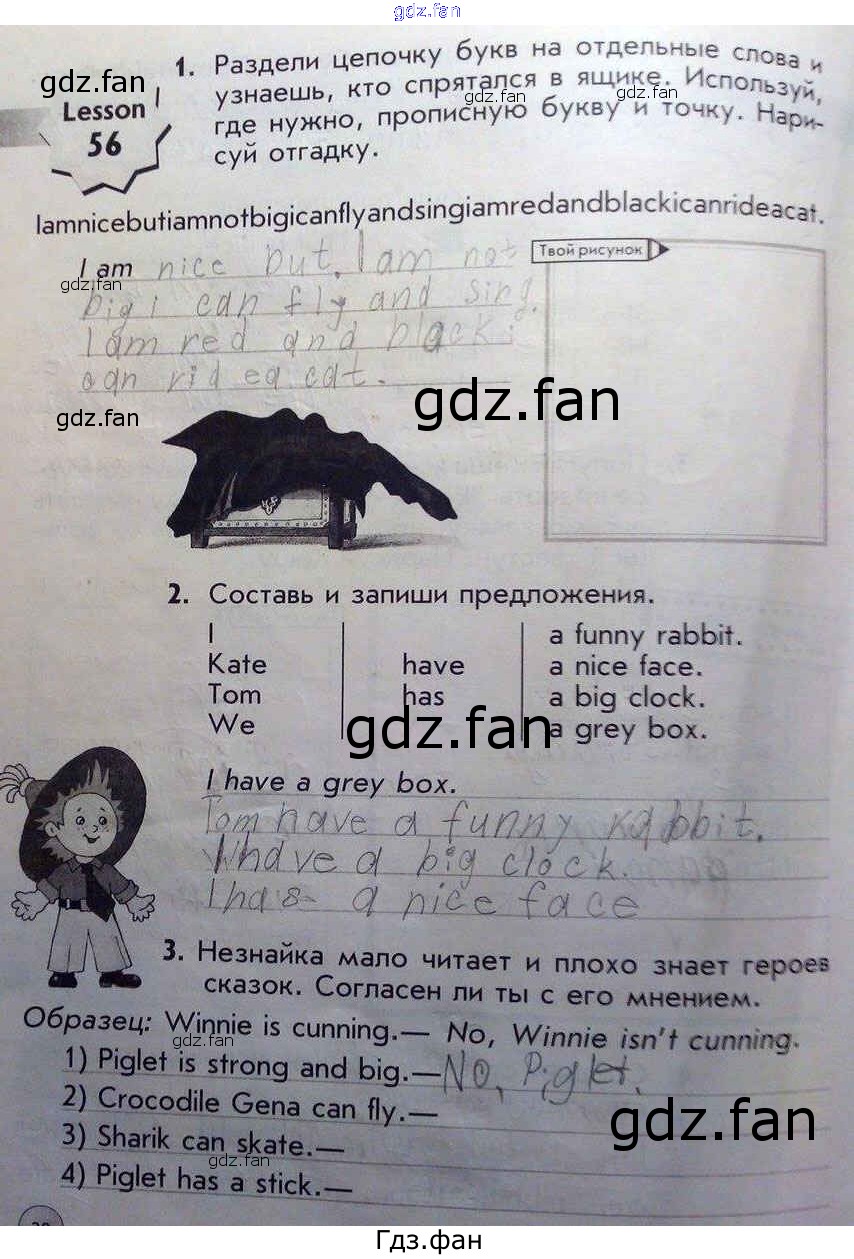 gdz.fan
1. Раздели цепочку букв на отдельные слова и
gdz.fan
узнаешь, кто спрятался в ящике. Используй,
gdz.fan
gdz.fan
Lesson
56
где нужно, прописную букву и точку. Нари-
суй отгадку.
Iamnicebutiamnotbigicanflyandsingiamredandblackicanrideacat.
I am nice but. I am not
Твой рисунок
gdz.fan
big i can fly and sing.
I am red and black i
can rid ea cat.
gdz.fan
gdz.fan
2. Составь и запиши предложения.
I
Kate
Tom
We
have
has
a funny rabbit.
a nice face.
a big clock.
a grey box.
gdz.fan
I have a grey box.
Tom have a funny rabbit.
have a big clock.
I has a nice face
3. Незнайка мало читает и плохо знает героев
сказок. Согласен ли ты с его мнением.
Образец: Winnie is cunning.— No, Winnie isn't cunning.
gdz.fan
1) Piglet is strong and big.— NO, Piglet.
2) Crocodile Gena can fly.—
gdz.fan
3) Sharik can skate.—
gdz.fan
4) Piglet has a stick.—
Гдз.фан